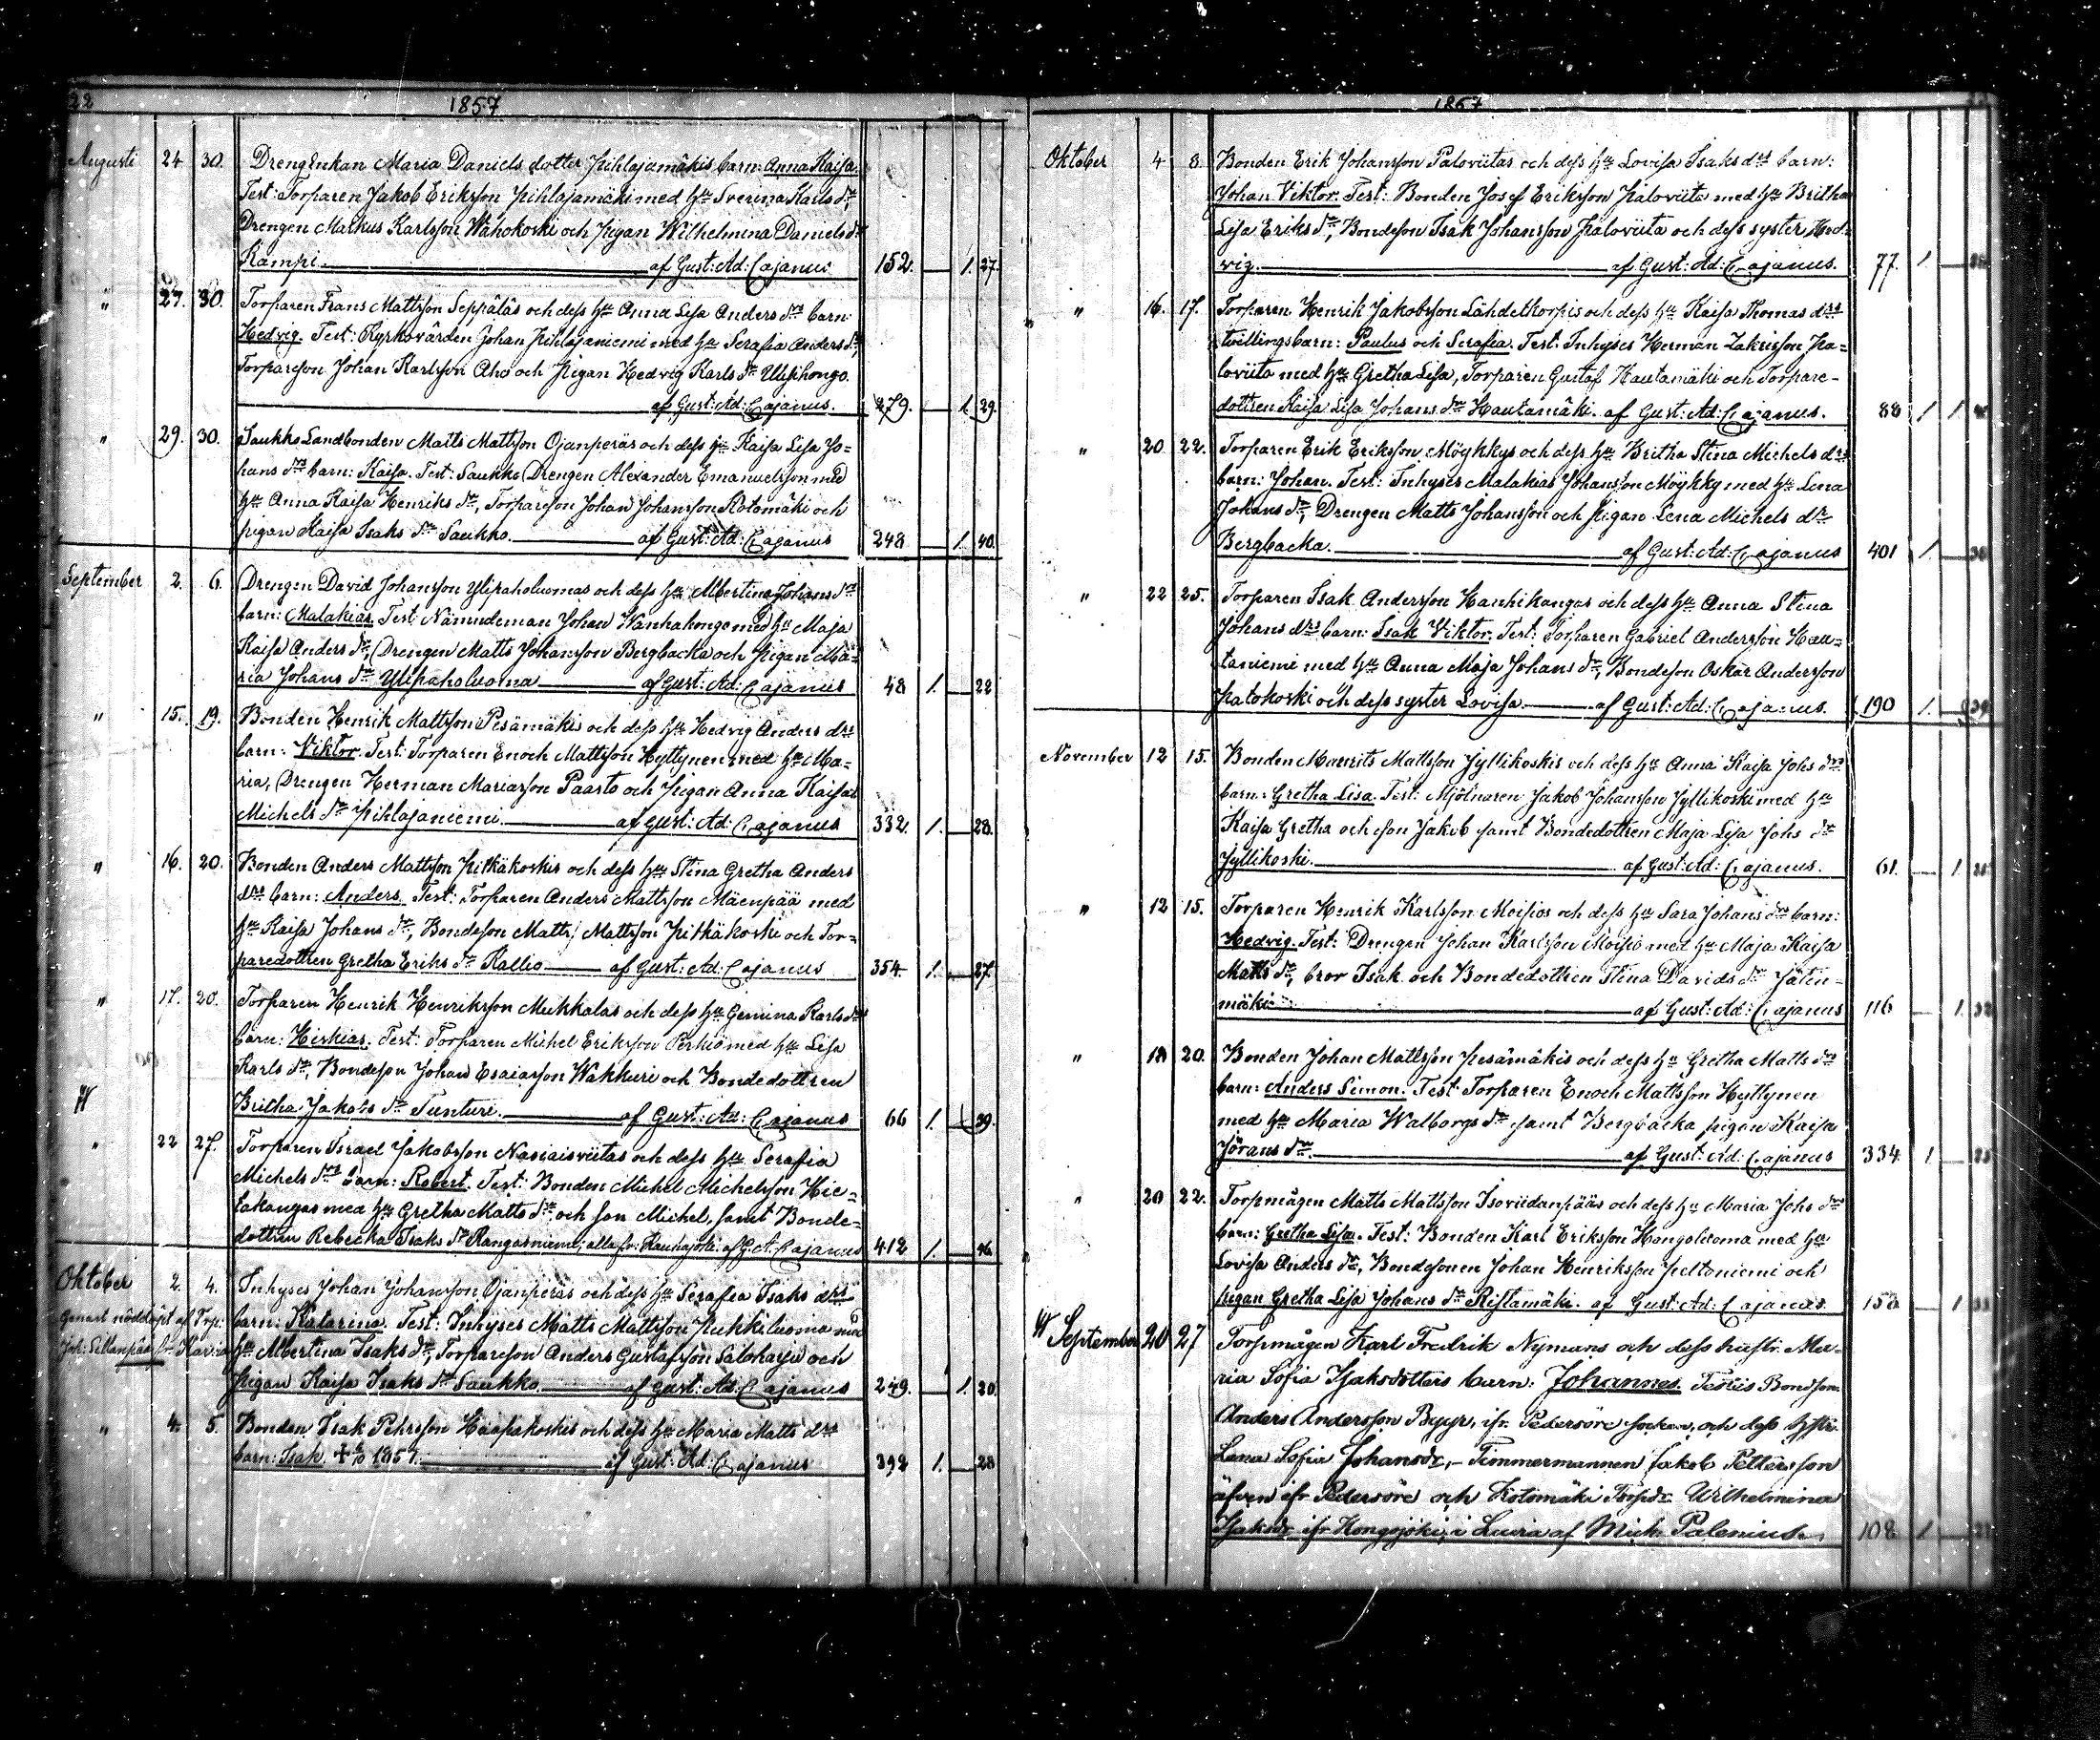 22
1857
Augusti 24 30. Drengenkan Maria Daniels dotter Pihlajamäkis barn: Anna Kaisa.
Test: Torparen Jakob Eriksson Pihlajamäki med h:u Sverina Karls d:r,
Drengen Markus Karlsson Wähäkoski och pigan Wilhelmina Daniels d:r
Kampi. af Gust: Ad: Cajanus 152. 1. 27.
" 27. 30. Torparen Frans Mattsson Seppäläs och dess h:u Anna Lisa Anders d:rs barn:
Hedvig. Test: Kyrkovärden Johan Pihlajaniemi med h:u Serafia Anders d:r,
Torpareson Johan Karlsson Aho och pigan Hedvig Karls d:r Ylihongo.
af Gust: Ad: Cajanus. 279. 1. 29.
" 29. 30. Saukko Landbonden Matts Mattsson Ojanperäs och dess h:u Kaisa Lisa Jo=
hans d:rs barn: Kaisa. Test: Saukko Drengen Alexander Emanuelsson med
h:u Anna Kaisa Henriks d:r, Torpareson Johan Johansson Kotomäki och
pigan Kaisa Isaks d:r Saukko. af Gust: Ad: Cajanus 248 1. 40.
September 2. 6. Drengen David Johansson Ylipaholuomas och dess h:u Albertina Johans d:rs
barn: Malakias. Test: Nämndeman Johan Wanhahongo med h:u Maja
Kaisa Anders d:r, Drengen Matts Johansson Bergbacka och pigan Ma=
ria Johans d:r Ylipaholuoma af Gust: Ad: Cajanus 48 1. 22
" 15. 19. Bonden Henrik Mattsson Pesämäkis och dess h:u Hedvig Anders d:rs
barn: Viktor. Test: Torparen Enoch Mattsson Hyttynen med h:u Ma=
ria, Drengen Herman Mariasson Paarto och pigan Anna Kaisa
Michels d:r Pihlajaniemi. af Gust: Ad: Cajanus 332. 1. 28.
" 16. 20. Bonden Anders Mattsson Pitkäkoskis och dess h:u Stina Gretha Anders
d:rs barn: Anders. Test: Torparen Anders Mattsson Mäenpää med
h:u Kaisa Johans d:r, Bondeson Matts Mattsson Pitkäkoski och Tor=
paredottren Gretha Eriks d:r Kallio af Gust: Ad: Cajanus 354. 1. 27.
" 17. 20. Torparen Henrik Henriksson Mukkalas och dess h:u Gemina Karls d:rs
barn: Hiskias. Test: Torparen Michel Eriksson Perkiö med h:u Lisa
Karls d:r, Bondeson Johan Esaiasson Wakkuri och Bondedottren
Britha Jakobs d:r Tunturi. af Gust: Ad: Cajanus 66 1. 39.
" 22 27. Torparen Israel Jakobsson Nasiaisviitas och dess h:u Serafia
Michels d:rs barn: Robert. Test: Bonden Michel Michelsson Hie=
takangas med h:u Gretha Matts d:r, och son Michel, samt Bonde=
dottren Rebecka Isaks d:r Kangasniemi; alla fr. Kauhajoki af G. A. Cajanus 412 1. 46
Oktober 2. 4. Inhyses Johan Johansson Ojanperäs och dess h:u Serafia Isaks d:rs
Genast nöddöpt af Trp:
barn: Katarina. Test: Inhyses Matts Mattsson Pukkiluoma med
h:u Albertina Isaks d:r, Torpareson Anders Gustafsson Saloharju och
pigan Kaisa Isaks d:r Saukko af Gust: Ad: Cajanus 249. 1. 20.
" 4. 5. Bonden Isak Pehrsson Haapakoskis och dess h:u Maria Matts d:rs
barn: Isak. af Gust: Ad: Cajanus 392 1. 28
1857
Oktober 4 8. Bonden Erik Johansson Paloviitas och dess h:u Lovisa Isaks d:rs barn:
Johan Viktor. Test: Bonden Josef Eriksson Paloviita med h:u Britha
Lisa Eriks d:r, Bondeson Isak Johansson Paloviita och dess syster Hed=
vig. af Gust: Ad: Cajanus. 77. 1.
" 16. 17. Torparen Henrik Jakobsson Lähdekorpis och dess h:u Kaisa Thomas d:rs
tvillingsbarn: Paulus och Serafia. Test: Inhyses Herman Zakrisson Pa=
loviita med h:u Gretha Lisa, Torparen Gustaf Hautamäki och Torpare-
dottren Kaisa Lisa Johans d:r Hautamäki. af Gust: Ad: Cajanus. 88 1 1
" 20 22. Torparen Erik Eriksson Möykkys och dess h:u Britha Stina Michels d:rs
barn: Johan. Test: Inhyses Malakias Johansson Möykky med h:u Lena
Johans d:r, Drengen Matts Johansson och pigan Lena Michels d:r
Bergbacka. af Gust: Ad: Cajanus 401 1.
" 22 25. Torparen Isak Andersson Hanhikangas och dess h:u Anna Stina
Johans d:rs barn: Isak Viktor. Test: Torparen Gabriel Andersson Hau=
taniemi med h:u Anna Maja Johans d:r, Bondeson Oskar Andersson
Katokoski och dess syster Lovisa af Gust: Ad: Cajanus. 190 1.
November 12 15. Bonden Maurits Mattsson Jyllikoskis och dess h:u Anna Kaisa Johs d:rs
barn: Gretha Lisa. Test: Mjölnaren Jakob Johansson Jyllikoski med h:u
Kaisa Gretha och son Jakob samt Bondedottren Maja Lisa Johs d:r
Jyllikoski. af Gust: Ad: Cajanus. 61. 1
" 12 15. Torparen Henrik Karlsson Moisios och dess h:u Sara Johans d:rs barn:
Hedvig. Test: Drengen Johan Karlsson Moisio med h:u Maja Kaisa
Matts d:r, bror Isak och Bondedottren Stina Davids d:r Jäten-
mäki af Gust: Ad: Cajanus 116 1
" 18 20. Bonden Johan Mattsson Pesämäkis och dess h:u Gretha Matts d:rs
barn: Anders Simon. Test: Torparen Enoch Mattsson Hyttynen
med h:u Maria Walborgs d:r samt Bergbacka pigan Kaisa
Jörans d:r. af Gust: Ad: Cajanus 334. 1
" 20 22. Torpmågen Matts Mattsson Isoviidanpääs och dess h:u Maria Johs d:rs
barn: Gretha Lisa. Test: Bonden Karl Eriksson Hongoluoma med h:u
Lovisa Anders d:r, Bondesonen Johan Henriksson Peltoniemi och
pigan Gretha Lisa Johans d:r Ristamäki. af Gust: Ad: Cajanus. 158 1
September 20 27 Torpmågen Karl Fredrik Nymans och dess hustr. Ma-
ria Sofia Isaksdotters barn: Johannes. Testis Bondson
Anders Andersson Byyr, ifr. Pedersöre socken, och dess hstr.
Lena Sofia Johansdr, - Timmermannen Jakob Pettersson
äfven ifr Pedersöre och Kotomäki Torpdr Wilhelmina
Isaksdr ifr Hongojoki, i Luvia af Mich. Palenius. 108 1